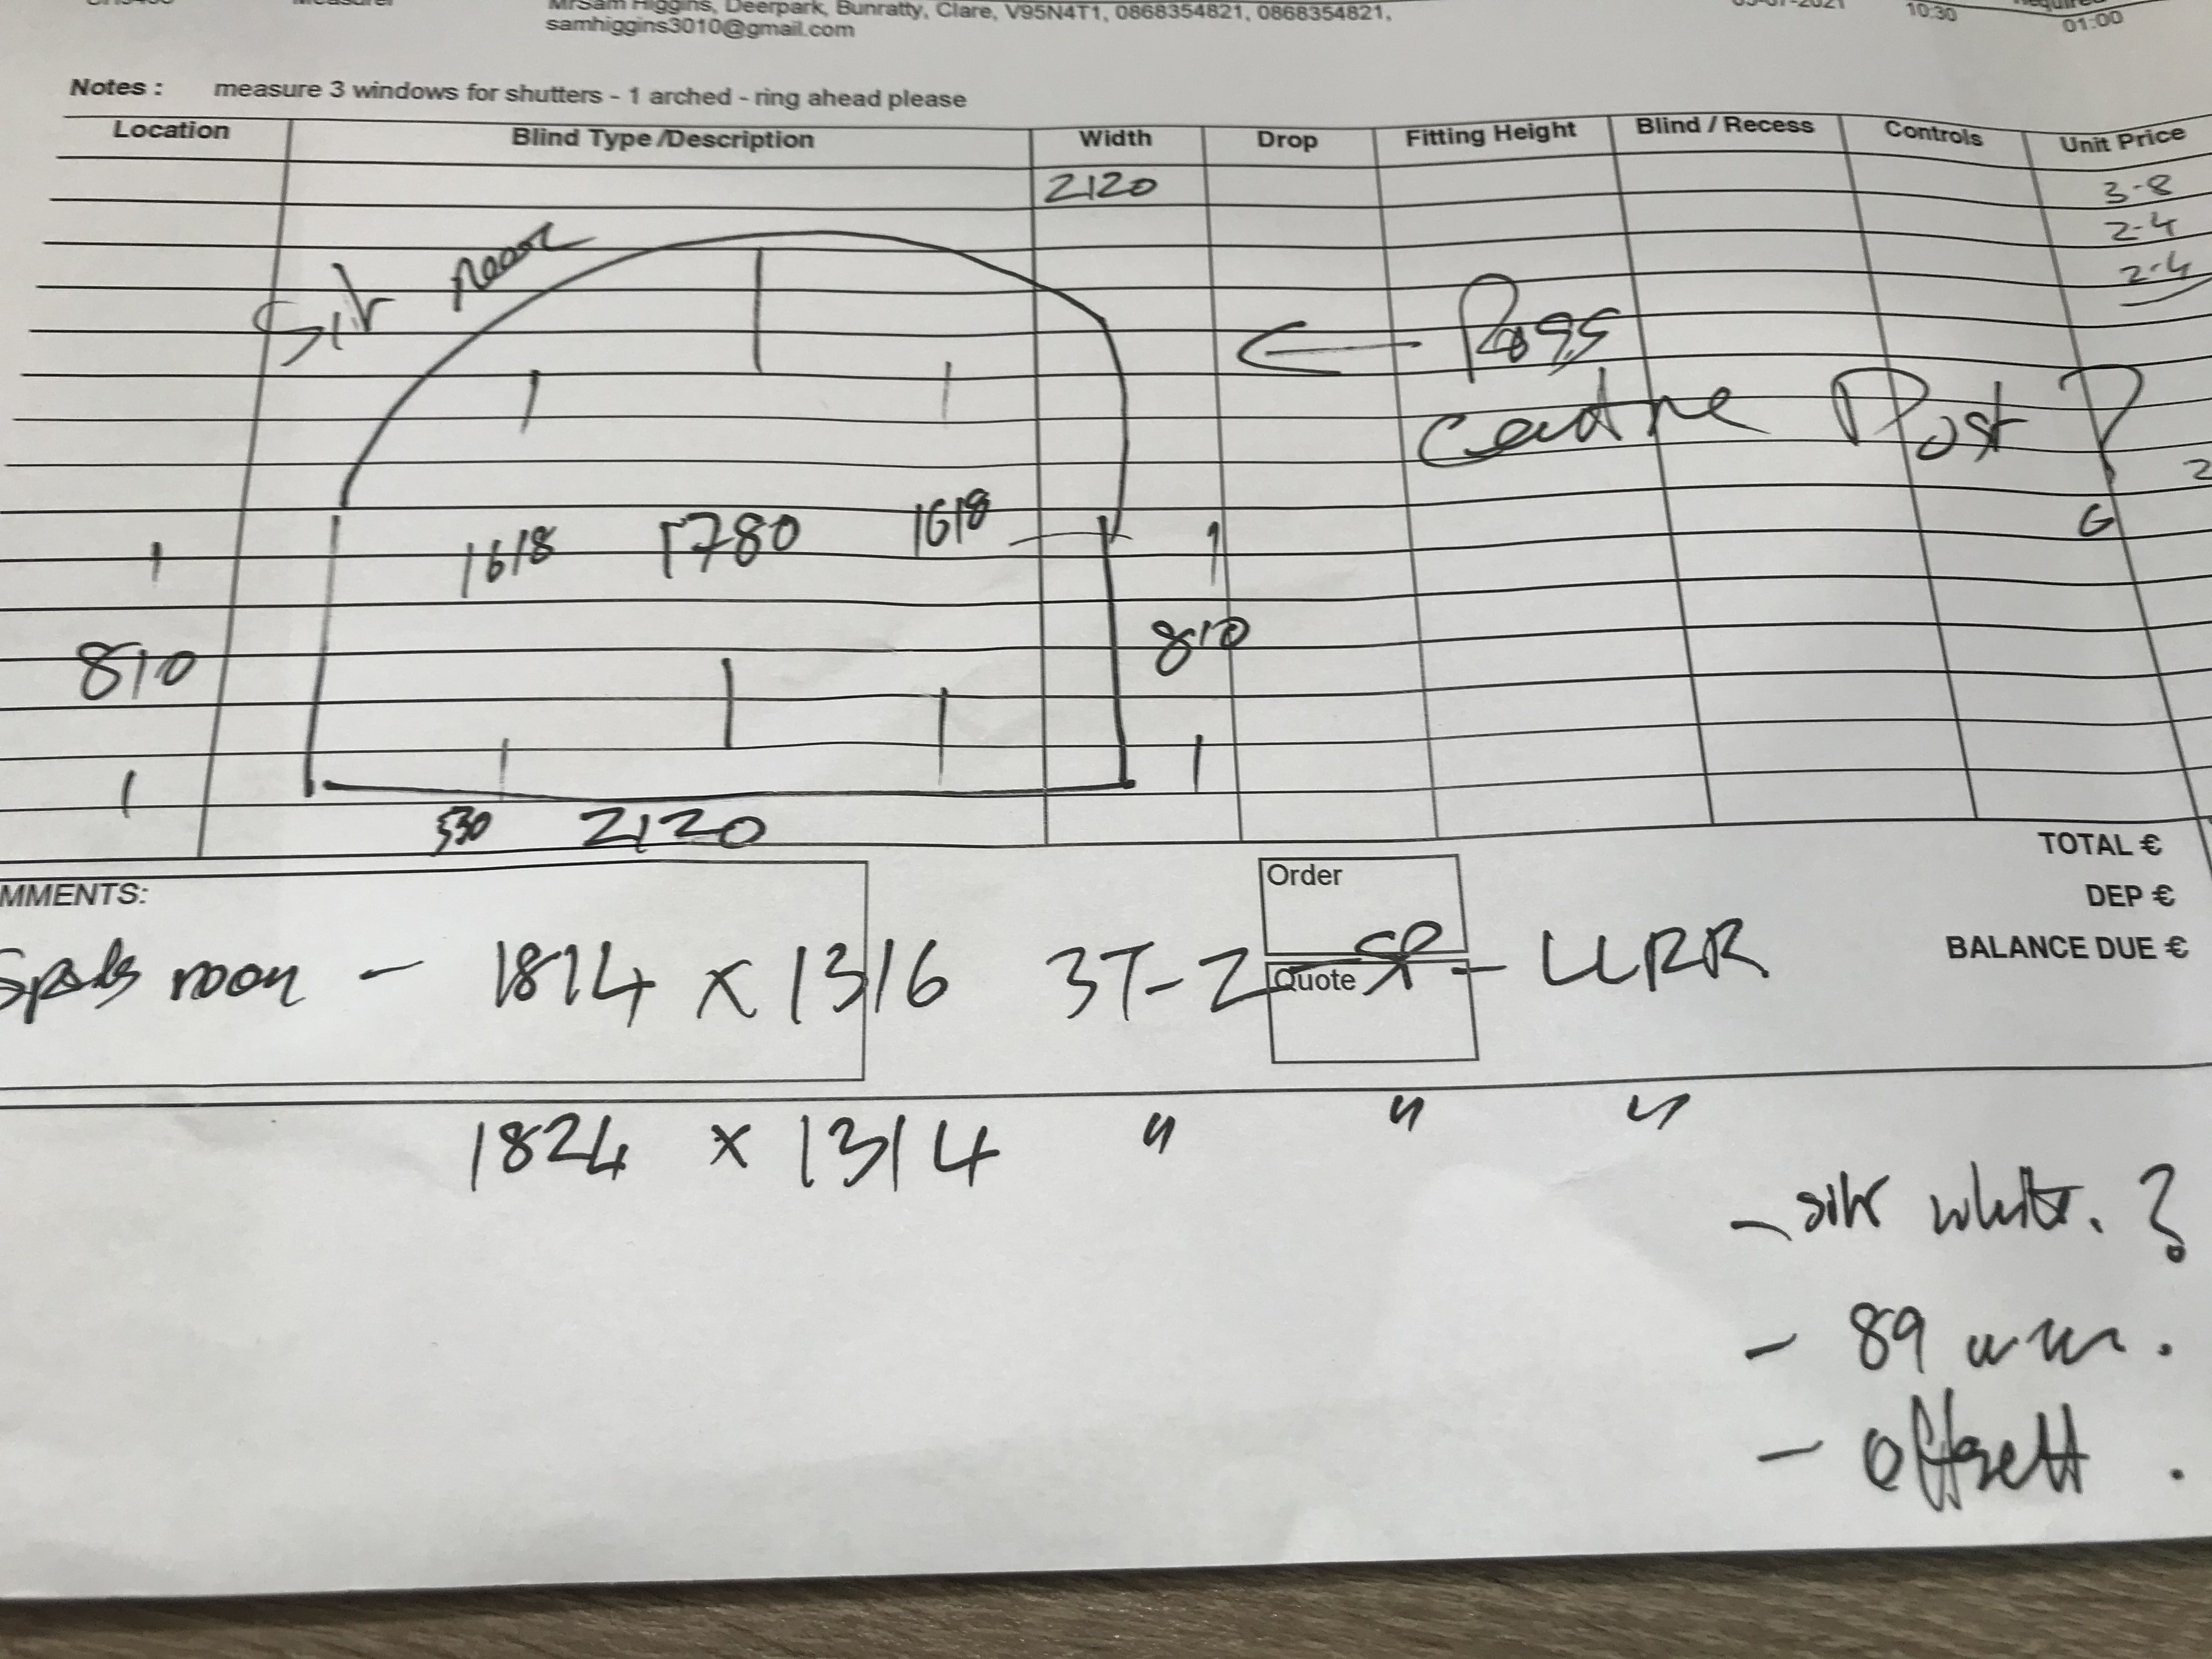 MrSam Higgins, Deerpark, Bunratty, Clare, V95N4T1, 0868354821, 0868354821,
samhiggins3010@gmail.com
10:30
01:00
Notes : measure 3 windows for shutters - 1 arched - ring ahead please
Location Blind Type /Description Width Drop Fitting Height Blind / Recess Controls Unit Price
2120
3-8
2-4
2-4
Centre Post ?
1618 1780 1618
810 810
530 2120
TOTAL €
DEP €
BALANCE DUE €
MMENTS:
Order
Quote
room - 1814 x 1316 3T- Z - SP - LLRR
1824 x 1314 " " "
- white. ?
- 89 mm.
- offsett .